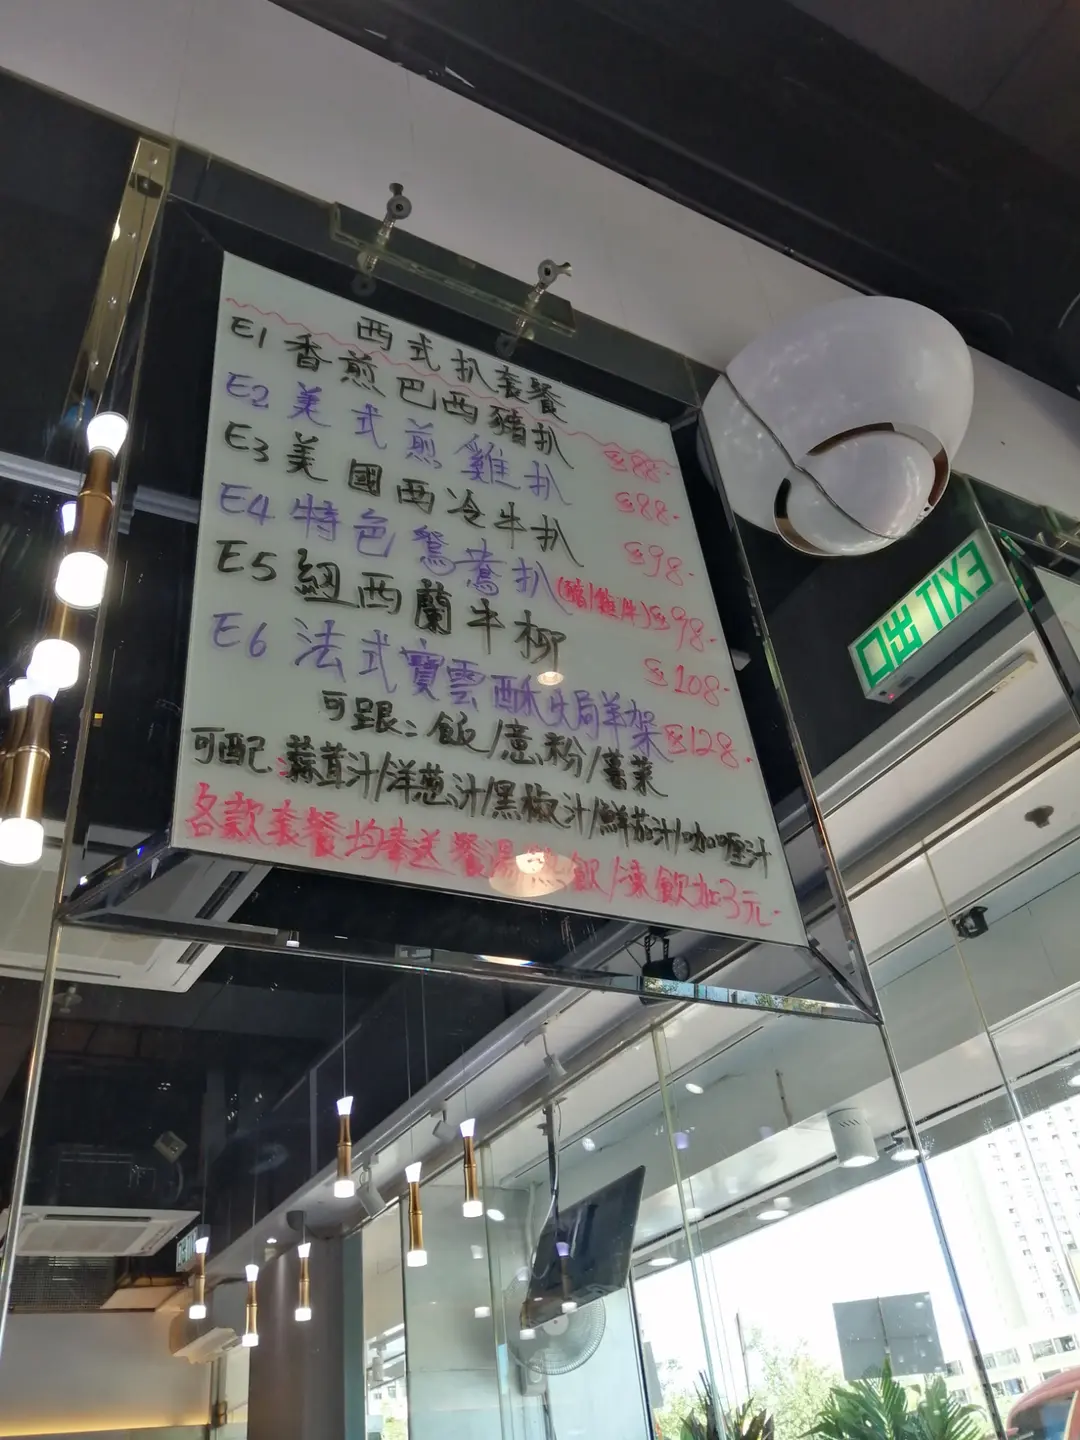 西式扒套餐
E1 香煎巴西豬扒 $88-
E2 美式煎雞扒 $88-
E3 美國西冷牛扒 $98-
E4 特色鴛鴦扒(豬/雞/牛) $98-
E5 紐西蘭牛柳 $108-
E6 法式寶雲酥焗羊架 $128-
可跟:飯/意粉/薯菜
可配:蒜茸汁/洋葱汁/黑椒汁/鮮茄汁/咖喱汁
各款套餐均奉送餐湯熱飲/凍飲加3元-
EXIT 出口